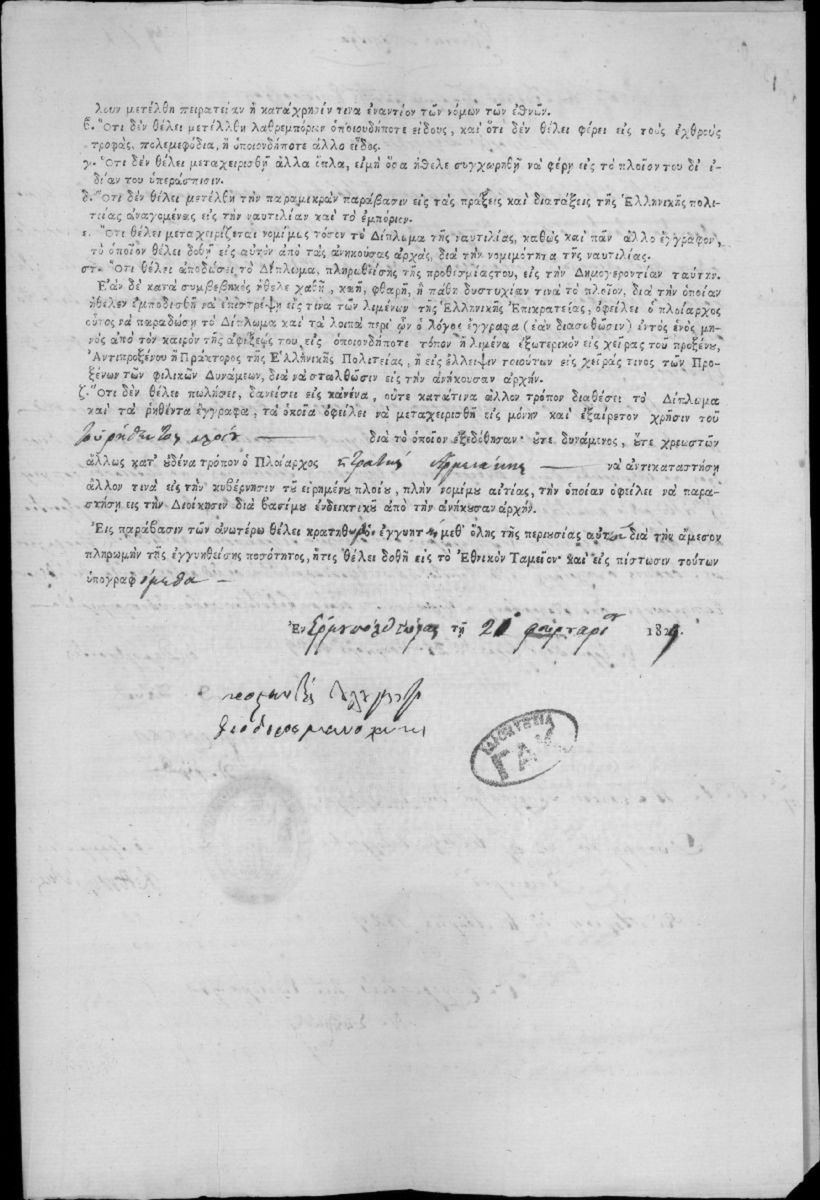 λουν μετέλθη πειρατείαν ἢ κατάχρησίν τινα ἐναντίον τῶν νόμων τῶν ἐθνῶν.
β. Ὅτι δὲν θέλει μετέλθη λαθρεμπόριον ὁποιουδήποτε εἴδους, καὶ ὅτι δὲν θέλει φέρει εἰς τοὺς ἐχθροὺς
τροφὰς, πολεμεφόδια, ἢ ὁποιονδήποτε ἄλλο εἶδος.
γ. Ὅτι δὲν θέλει μεταχειρισθῆ ἄλλα ὅπλα, εἰμὴ ὅσα ἤθελε συγχωρηθῆ νὰ φέρῃ εἰς τὸ πλοῖόν του δι' ἰ-
δίαν του ὑπεράσπισιν.
δ. Ὅτι δὲν θέλει μετέλθη τὴν παραμικρὰν παράβασιν εἰς τὰς πράξεις καὶ διατάξεις τῆς Ἑλληνικῆς πολι-
τείας ἀναγομένας εἰς τὴν ναυτιλίαν καὶ τὸ ἐμπόριον.
ε. Ὅτι θέλει μεταχειρίζεται νομίμως τόσον τὸ Δίπλωμα τῆς ναυτιλίας, καθὼς καὶ πᾶν ἄλλο ἔγγραφον,
τὸ ὁποῖον θέλει δοθῆ εἰς αὐτὸν ἀπὸ τὰς ἀνηκούσας ἀρχὰς, διὰ τὴν νομιμότητα τῆς ναυτιλίας.
στ. Ὅτι θέλει ἀποδώσει τὸ Δίπλωμα, πληρωθείσης τῆς προθεσμίας του, εἰς τὴν Δημογεροντίαν ταύτην.
Ἐὰν δὲ κατὰ συμβεβηκὸς ἤθελε χαθῆ, καῆ, φθαρῆ, ἢ πάθῃ δυστυχίαν τινὰ τὸ πλοῖον, διὰ τὴν ὁποίαν
ἤθελεν ἐμποδισθῆ νὰ ἐπιστρέψῃ εἰς τινα τῶν λιμένων τῆς Ἑλληνικῆς Ἐπικρατείας, ὀφείλει ὁ πλοίαρχος
οὗτος νὰ παραδώσῃ τὸ Δίπλωμα καὶ τὰ λοιπὰ περὶ ὧν ὁ λόγος ἔγγραφα (ἐὰν διασωθῶσιν) ἐντὸς ἑνὸς μη-
νὸς ἀπὸ τὸν καιρὸν τῆς ἀφίξεώς του εἰς ὁποιονδήποτε τόπον ἢ λιμένα ἐξωτερικὸν εἰς χεῖρας τοῦ προξένου,
Ἀντιπροξένου ἢ Πράκτορος τῆς Ἑλληνικῆς Πολιτείας, ἢ εἰς ἔλλειψιν τοιούτων εἰς χεῖράς τινος τῶν Προ-
ξένων τῶν φιλικῶν Δυνάμεων, διὰ νὰ σταλθῶσιν εἰς τὴν ἀνήκουσαν ἀρχήν.
ζ. Ὅτι δὲν θέλει πωλήσει, δανείσει εἰς κανένα, οὔτε κατά τινα ἄλλον τρόπον διαθέσει τὸ Δίπλωμα
καὶ τὰ ῥηθέντα ἔγγραφα, τὰ ὁποῖα ὀφείλει νὰ μεταχειρισθῆ εἰς μόνην καὶ ἐξαίρετον χρῆσιν τοῦ
διὰ τὸ ὁποῖον ἐξεδόθησαν· οὔτε δυνάμενος, οὔτε χρεωστῶν
ἄλλως κατ' οὐδένα τρόπον ὁ Πλοίαρχος νὰ ἀντικαταστήσῃ
ἄλλον τινὰ εἰς τὴν κυβέρνησιν τοῦ εἰρημένου πλοίου, πλὴν νομίμου αἰτίας, τὴν ὁποίαν ὀφείλει νὰ παρα-
στήσῃ εἰς τὴν Διοίκησιν διὰ βασίμου ἐνδεικτικοῦ ἀπὸ τὴν ἀνήκουσαν ἀρχήν.
Εἰς παράβασιν τῶν ἀνωτέρω θέλει κρατηθῶμεν ἐγγυηταὶ μεθ' ὅλης τῆς περιουσίας αὐτῶν διὰ τὴν ἄμεσον
πληρωμὴν τῆς ἐγγυηθείσης ποσότητος, ἥτις θέλει δοθῆ εἰς τὸ Ἐθνικὸν Ταμεῖον· καὶ εἰς πίστωσιν τούτων
ὑπογραφόμεθα
Ἐν Ἑρμουπόλει τῇ 21 1829.
ΓΑΚ